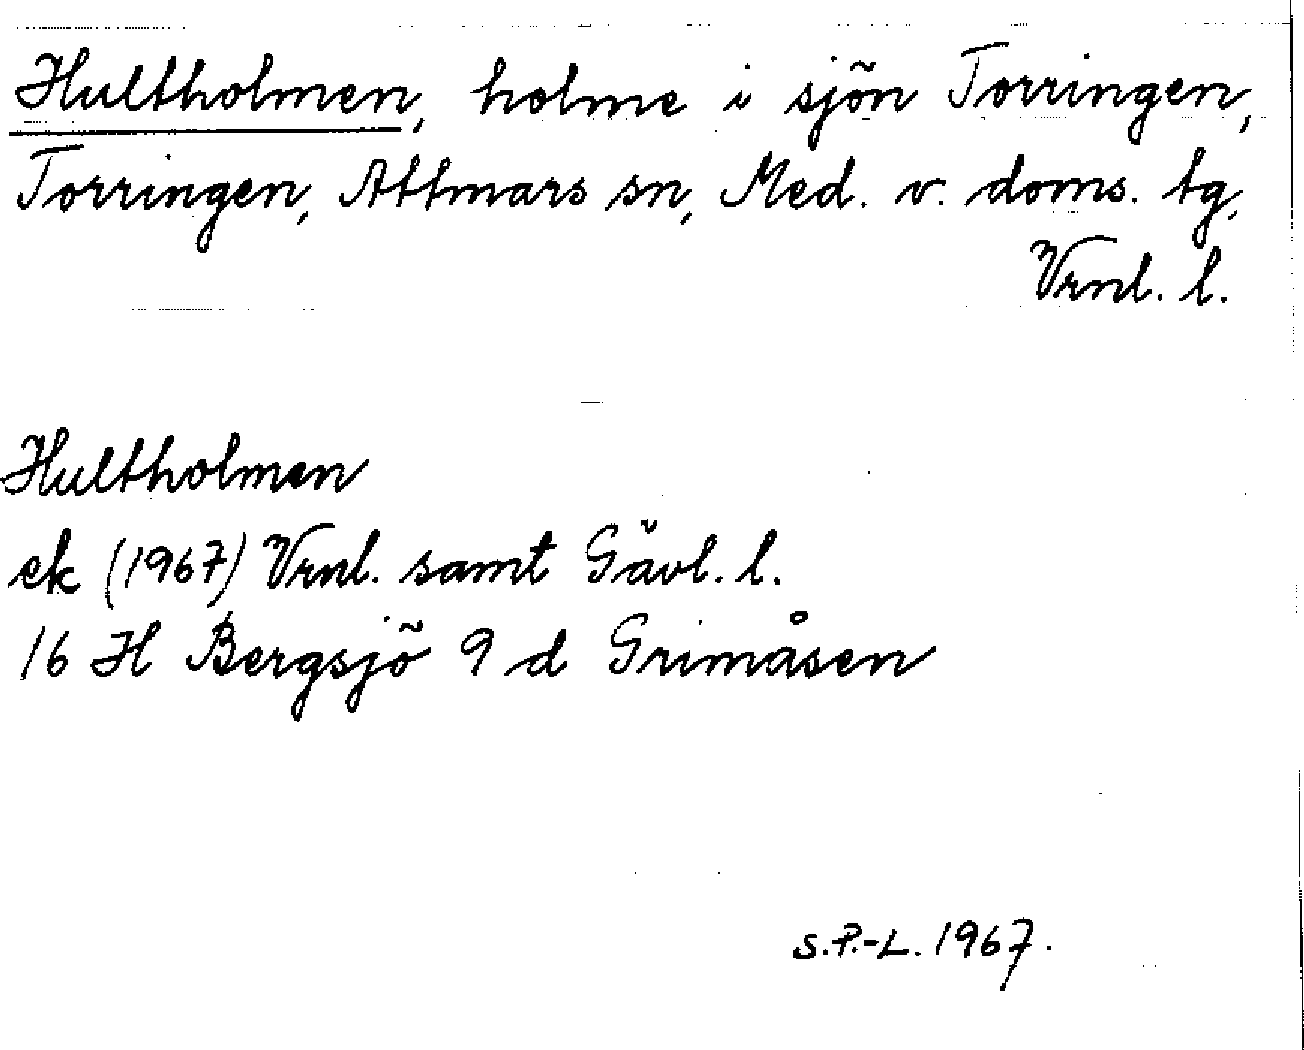 Hultholmen, holme i sjön Torringen,
Torringen, Attmars sn, Med. v. doms. tg,
Vrnl. l.
Hultholmen
ek (1967) Vrnl. samt Gävl. l.
16 H Bergsjö 9 d Grimåsen
S.P.-L. 1967.